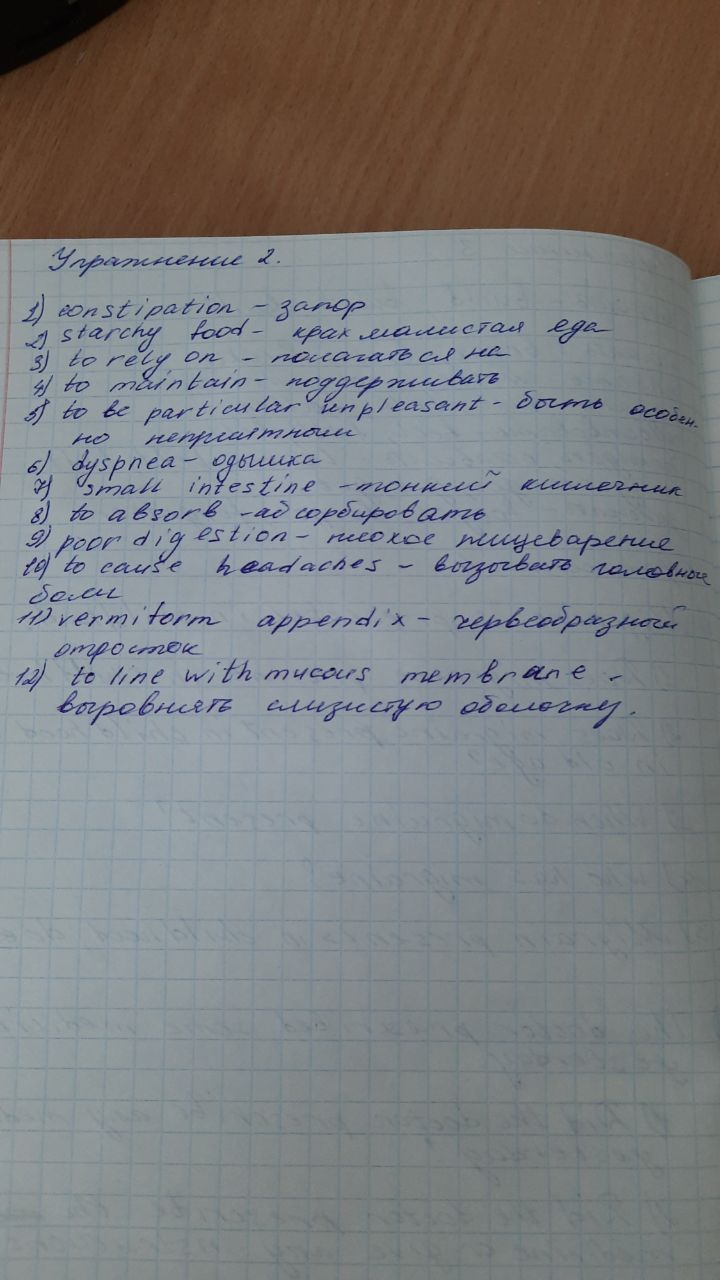 Упражнение 2.
1) constipation - запор
2) starchy food - крахмалистая еда
3) to rely on - полагаться на
4) to maintain - поддерживать
5) to be particular unpleasant - быть особен-
но неприятным
6) dyspnea - одышка
7) small intestine - тонкий кишечник
8) to absorb - адсорбировать
9) poor digestion - плохое пищеварение
10) to cause headaches - вызывать головные
боли
11) vermiform appendix - червеобразный
отросток
12) to line with mucous membrane -
выровнять слизистую оболочку.